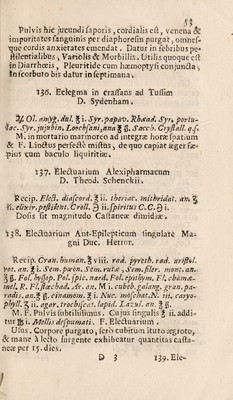 53
Pulvis hic jucundi saporis, cordialis est, venena &
impuritates sanguinis per diaphoresin purgat, omnes-
que cordis anxietates emendat. Datur in febribus pe-
stilentialibus, Variolis & Morbillis. Utilis quoque est
in Diarrhœis, Pleuritide cum hæmoptysi conjuncta;
In scorbuto bis datur in septimana.
136. Eclegma in crassans ad Tussim
D. Sydenham.
℞ Ol. amyg. dul. ℥ii. Syr. papav. Rhœad. Syr. portu-
lac. Syr. jujubin. Loochsani, ana ℥ß. Sacch. Crystall. q.s
M. in mortario marmoreo ad integræ horæ spatium
& F. Linctus perfectè mistus, de quo capiat æger sæ-
pius cum baculo liquiritiæ.
137. Electuarium Alexipharmacum
D. Theod. Schenckii.
Recip. Elect. diascord. ℥ii. theriac. mithridat. an. ℥
ß. elixir. pestilent. Croll. ʒii. spiritus C.C. ʒi.
Dosis sit magnitudo Castaneæ dimidiæ.
138. Electuarium Ant-Epilepticum singulare Ma-
gni Duc. Hetrur.
Recip. Cran. human. ℥viii. rad. pyreth. rad. aristol.
rot. an. ℥i. Sem. pæon. Sem. rutæ, Sem. siler. mont. an.
℥ß. Fol. hyssop. Fol. spic. nard. Fol. epithym. Fl. chamæ-
mel. R. Fl. stœchad. Ar. an. M i. cubeb. galang. gran. pa-
radis. an. ℥ß. cinamom. ℥i. Nuc. moschat. N. iii. caryo-
phyll. ℥ii. agar. trochiscat. lapid. Lazul. an. ℥ß.
M. F. Pulvis subtilissimus. Cujus singulis ℥ii. addi-
tur ℔i. Mellis despumati. F. Electuarium.
Usus. Corpore purgato, serò cubitum ituro ægroto,
& mane à lecto surgente exhibeatur quantitas casta-
neæ per 15. dies.
D 3
139. Ele-